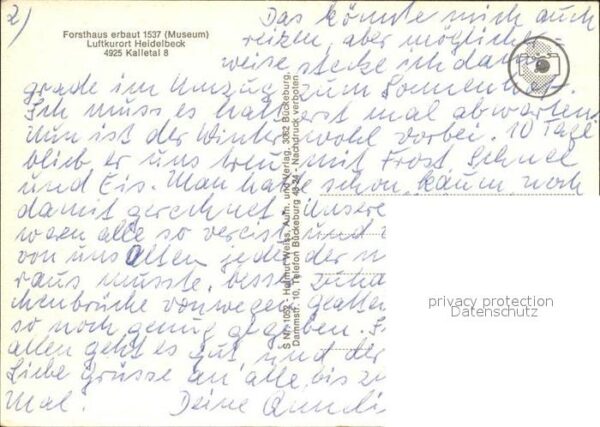 2)
Forsthaus erbaut 1537 (Museum)
Luftkurort Heidelbeck
4925 Kalletal 8
Das könnte mich auch
reizen, aber möglicher-
weise stecke ich dann
grade im Umzug zum Sonnenhof.
Ich muss es halt erst mal abwarten.
Nun ist der Winter wohl vorbei. 10 Tage
blieb er uns treu mit Frost Schnee
und Eis. Man hatte schon kaum noch
damit gerechnet. Unsere
waren alle so vereist und
von uns alten jeder der
raus musste, besser
chenbrüche von wegen Glatteis
so noch genug gegeben.
allen geht es gut und der
Liebe Grüsse an alle, bis
Mal! Deine
S Nr. 1052 - Helmut Weiss, Aufn. und Verlag, 3062 Bückeburg,
Dammstr. 10, Telefon Bückeburg 43 24 - Nachdruck verboten
privacy protection
Datenschutz